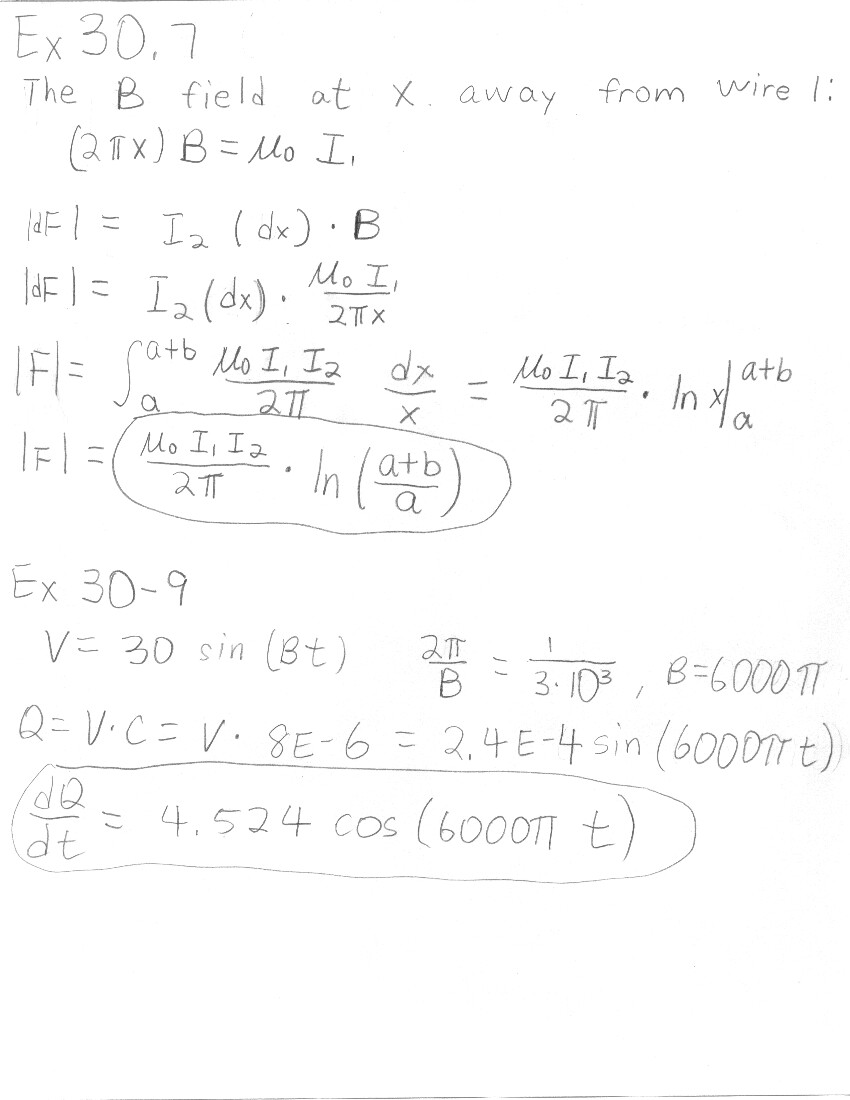 Ex 30.7
The B field at x. away from wire 1:
(2πx) B = μ₀ I₁
|dF| = I₂ (dx) · B
|dF| = I₂ (dx) · μ₀ I₁ / 2πx
|F| = ∫ₐᵃ⁺ᵇ μ₀ I₁ I₂ / 2π dx / x = μ₀ I₁ I₂ / 2π · ln x |ₐᵃ⁺ᵇ
|F| = μ₀ I₁ I₂ / 2π · ln (a+b / a)
Ex 30-9
V = 30 sin (Bt) 2π / B = 1 / 3·10³ , B=6000π
Q = V·C = V · 8E-6 = 2.4E-4 sin (6000π t)
dQ / dt = 4.524 cos (6000π t)